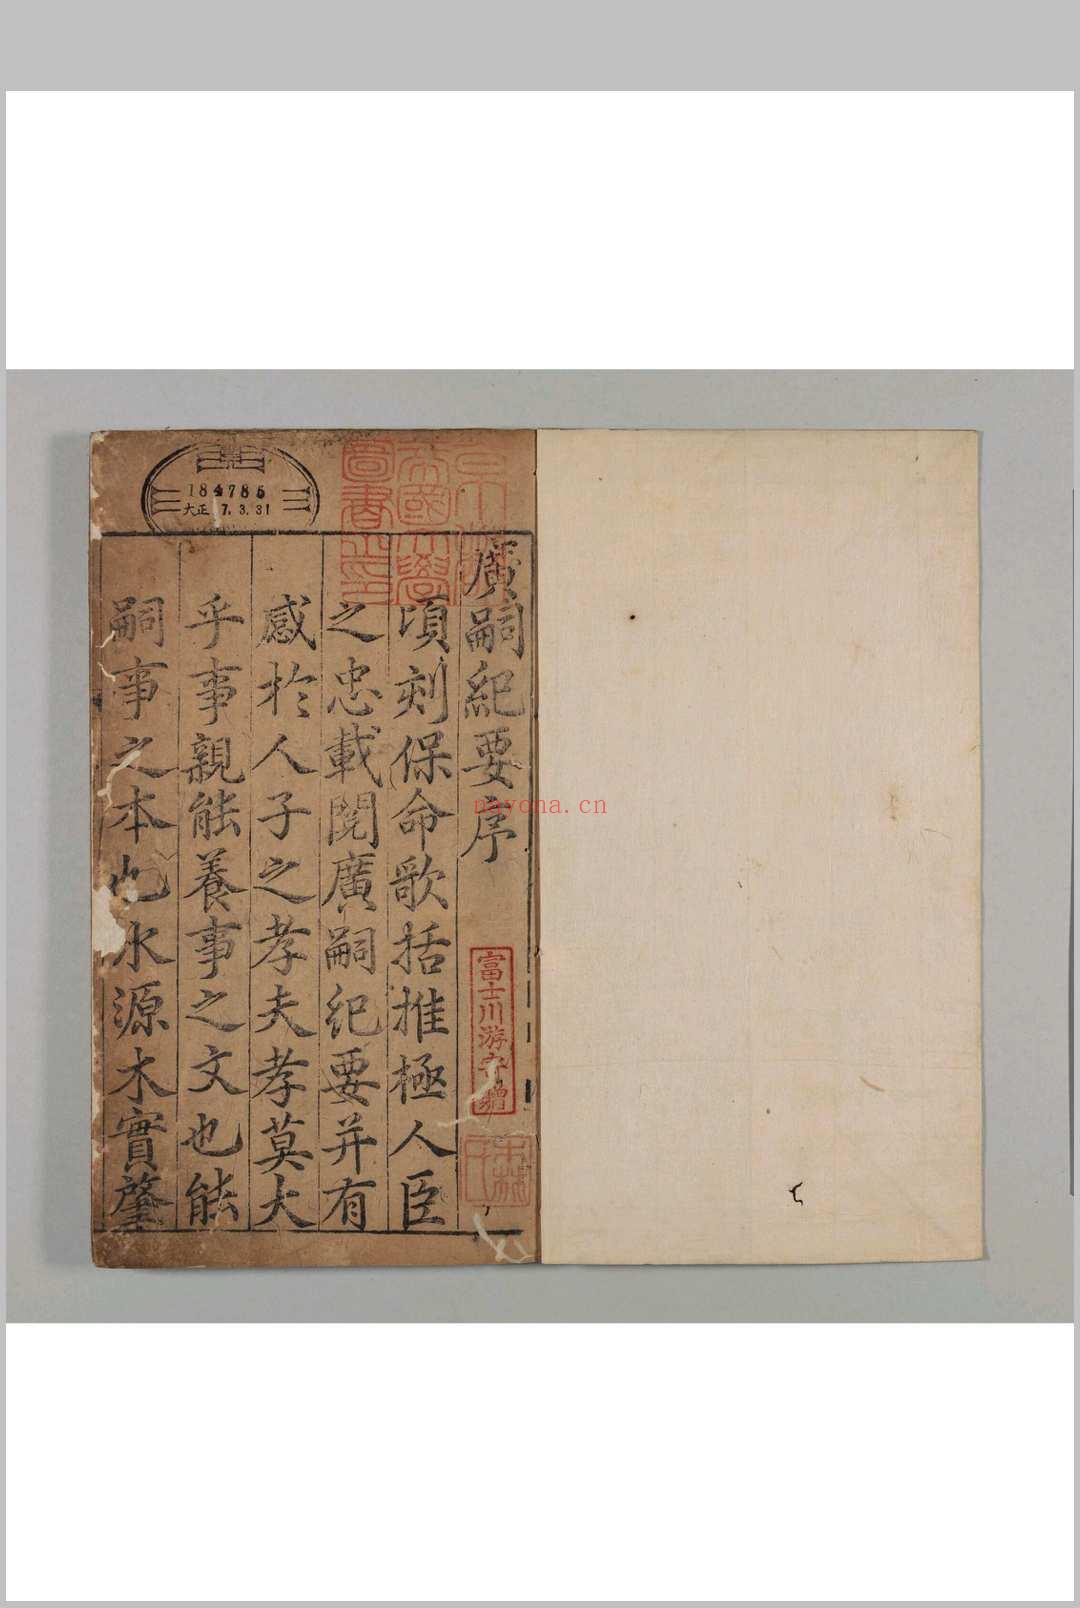 廣嗣紀要序
頃刻保命歌括推極人臣
之忠載閱廣嗣紀要并有
感於人子之孝夫孝莫大
乎事親能養事之文也能
嗣事之本也水源木實肇
184785
大正 7.3.31
京都
帝國大學
圖書之印
富士川游寄贈
nayona.cn